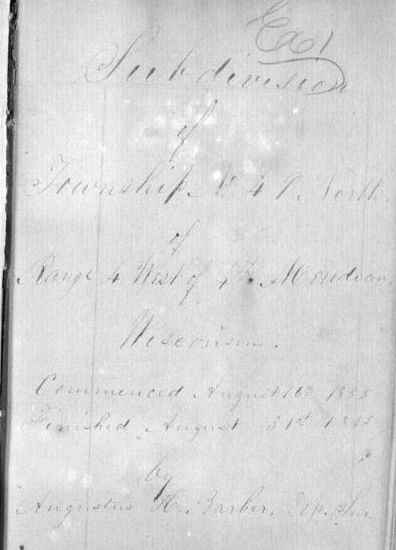 Ex
Subdivision
of
Township N 47 North
of
Range 4 West of 4th Meridian,
Wisconsin.
Commenced August 1855
Finished August 31st 1855
by
Augustus H. Barber, Dep. Sur